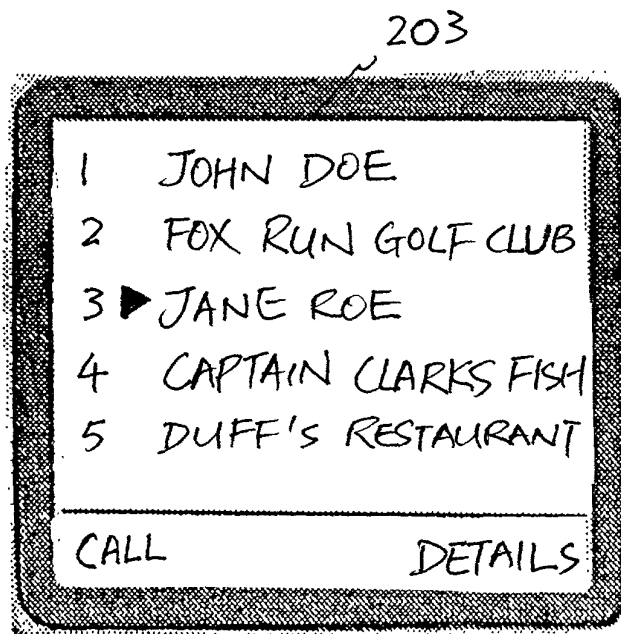 203
1 JOHN DOE
2 FOX RUN GOLF CLUB
3 ▶ JANE ROE
4 CAPTAIN CLARKS FISH
5 DUFF'S RESTAURANT
CALL DETAILS